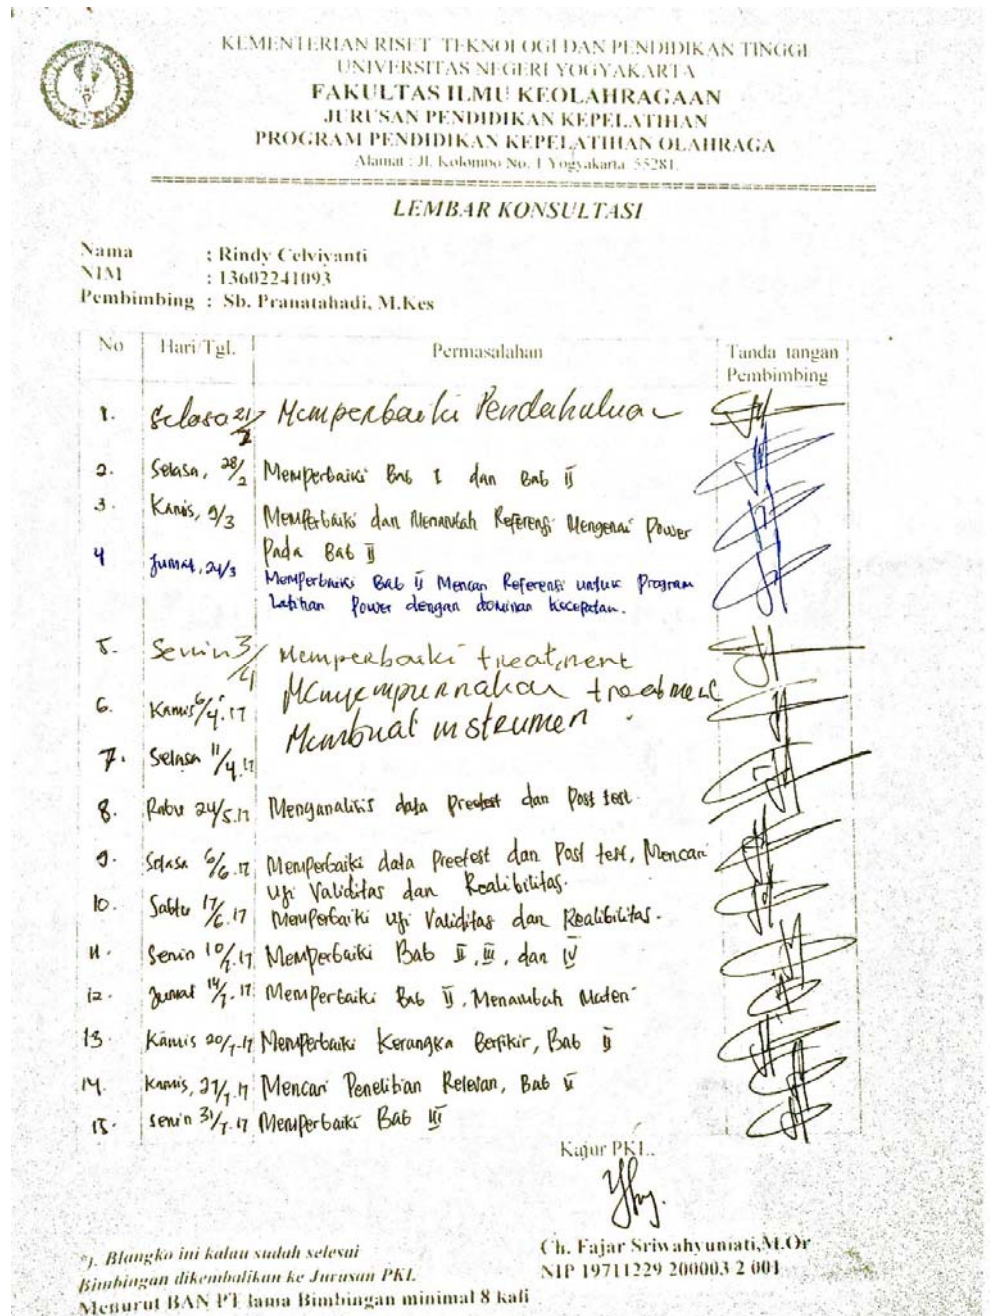 KEMENTERIAN RISET TEKNOLOGI DAN PENDIDIKAN TINGGI
UNIVERSITAS NEGERI YOGYAKARTA
FAKULTAS ILMU KEOLAHRAGAAN
JURUSAN PENDIDIKAN KEPELATIHAN
PROGRAM PENDIDIKAN KEPELATIHAN OLAHRAGA
Alamat : Jl. Kolombo No. 1 Yogyakarta 55281.
LEMBAR KONSULTASI
Nama : Rindy Celviyanti
NIM : 13602241093
Pembimbing : Sb. Pranatahadi, M.Kes
No Hari/Tgl. Permasalahan Tanda tangan
Pembimbing
1. Selasa 21/2 Memperbaiki Pendahuluan
2. Selasa, 28/2 Memperbaiki Bab I dan Bab II
3. Kamis, 9/3 Memperbaiki dan Menambah Referensi Mengenai Power
Pada Bab II
4 Jumat, 24/3 Memperbaiki Bab II Mencari Referensi untuk Program
Latihan Power dengan dominan kecepatan.
5. Senin 3/4 Memperbaiki treatment
6. Kamis 6/4.17 Menyempurnakan treatment
7. Selasa 11/4.17 Membuat instrumen
8. Rabu 24/5.17 Menganalisis data Preetest dan Post test.
9. Selasa 6/6.17 Memperbaiki data Preetest dan Post test, Mencari
Uji Validitas dan Realibilitas.
10. Sabtu 17/6.17 Memperbaiki Uji Validitas dan Realibilitas.
11. Senin 10/7.17 Memperbaiki Bab II, III, dan IV
12. Jumat 14/7.17 Memperbaiki Bab II, Menambah Materi
13. Kamis 20/7.17 Memperbaiki Kerangka Berfikir, Bab II
14. Kamis, 27/7.17 Mencari Penelitian Relevan, Bab II
15. Senin 31/7.17 Memperbaiki Bab III
Kajur PKL.
Ch. Fajar Sriwahyuniati,M.Or
NIP 19711229 200003 2 001
*). Blangko ini kalau sudah selesai
Bimbingan dikembalikan ke Jurusan PKL
Menurut BAN PT lama Bimbingan minimal 8 kali